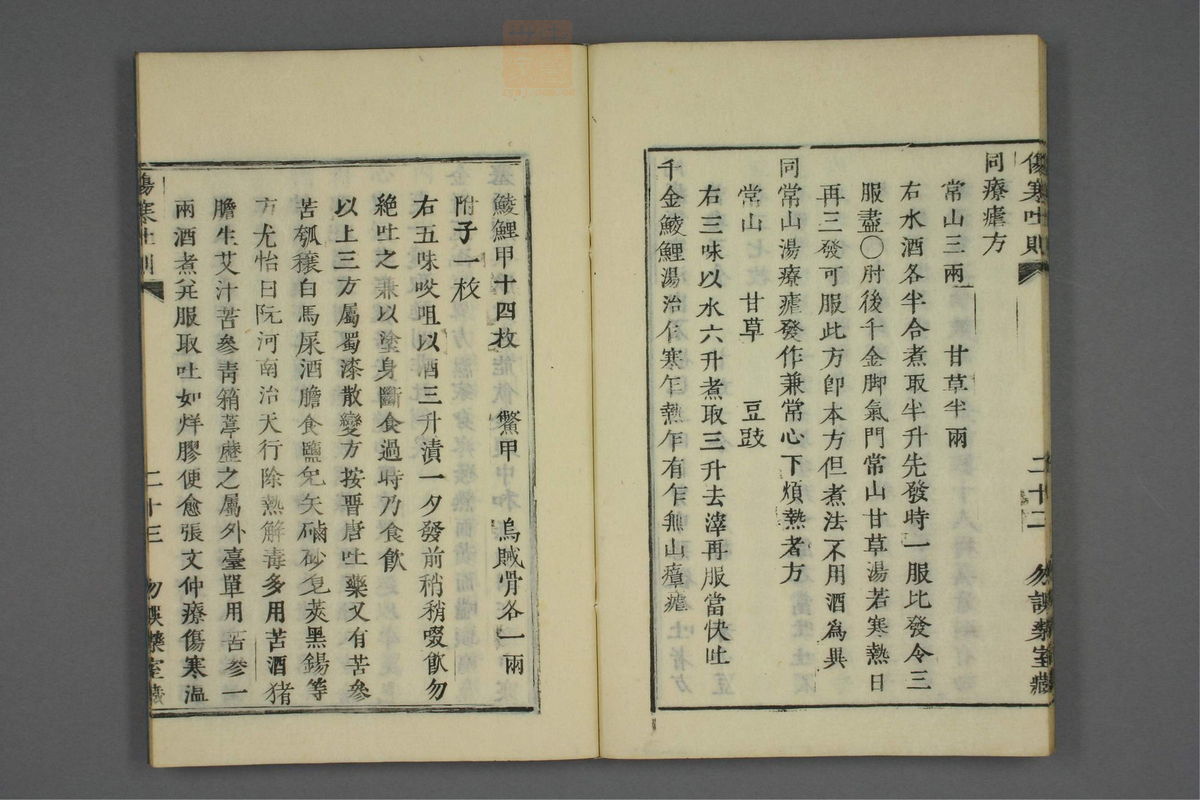 傷寒吐則 二十二 勿誤藥室藏
同療瘧方
常山三兩 甘草半兩
右水酒各半合煮取半升先發時一服比發令三
服盡〇肘後千金脚氣門常山甘草湯若寒熱日
再三發可服此方卽本方但煮法不用酒爲異
同常山湯療瘧發作兼常心下煩熱者方
常山 甘草 豆豉
右三味以水六升煮取三升去滓再服當快吐
千金鯪鯉湯治乍寒乍熱乍有乍無山瘴瘧
鯪鯉甲十四枚 鱉甲 烏賊骨各一兩
附子一枚
右五味㕮咀以酒三升漬一夕發前稍稍啜飮勿
絶吐之兼以塗身斷食過時乃食飮
以上三方屬蜀漆散變方按晋唐吐藥又有苦參
苦瓠穰白馬尿酒膽食鹽兒矢硇砂皂莢黑錫等
方尤怡曰阮河南治天行除熱解毒多用苦酒猪
膽生艾汁苦參青葙葶藶之屬外臺單用苦參一
兩酒煮幷服取吐如烊膠便愈張文仲療傷寒溫
傷寒吐則 二十三 勿誤藥室藏